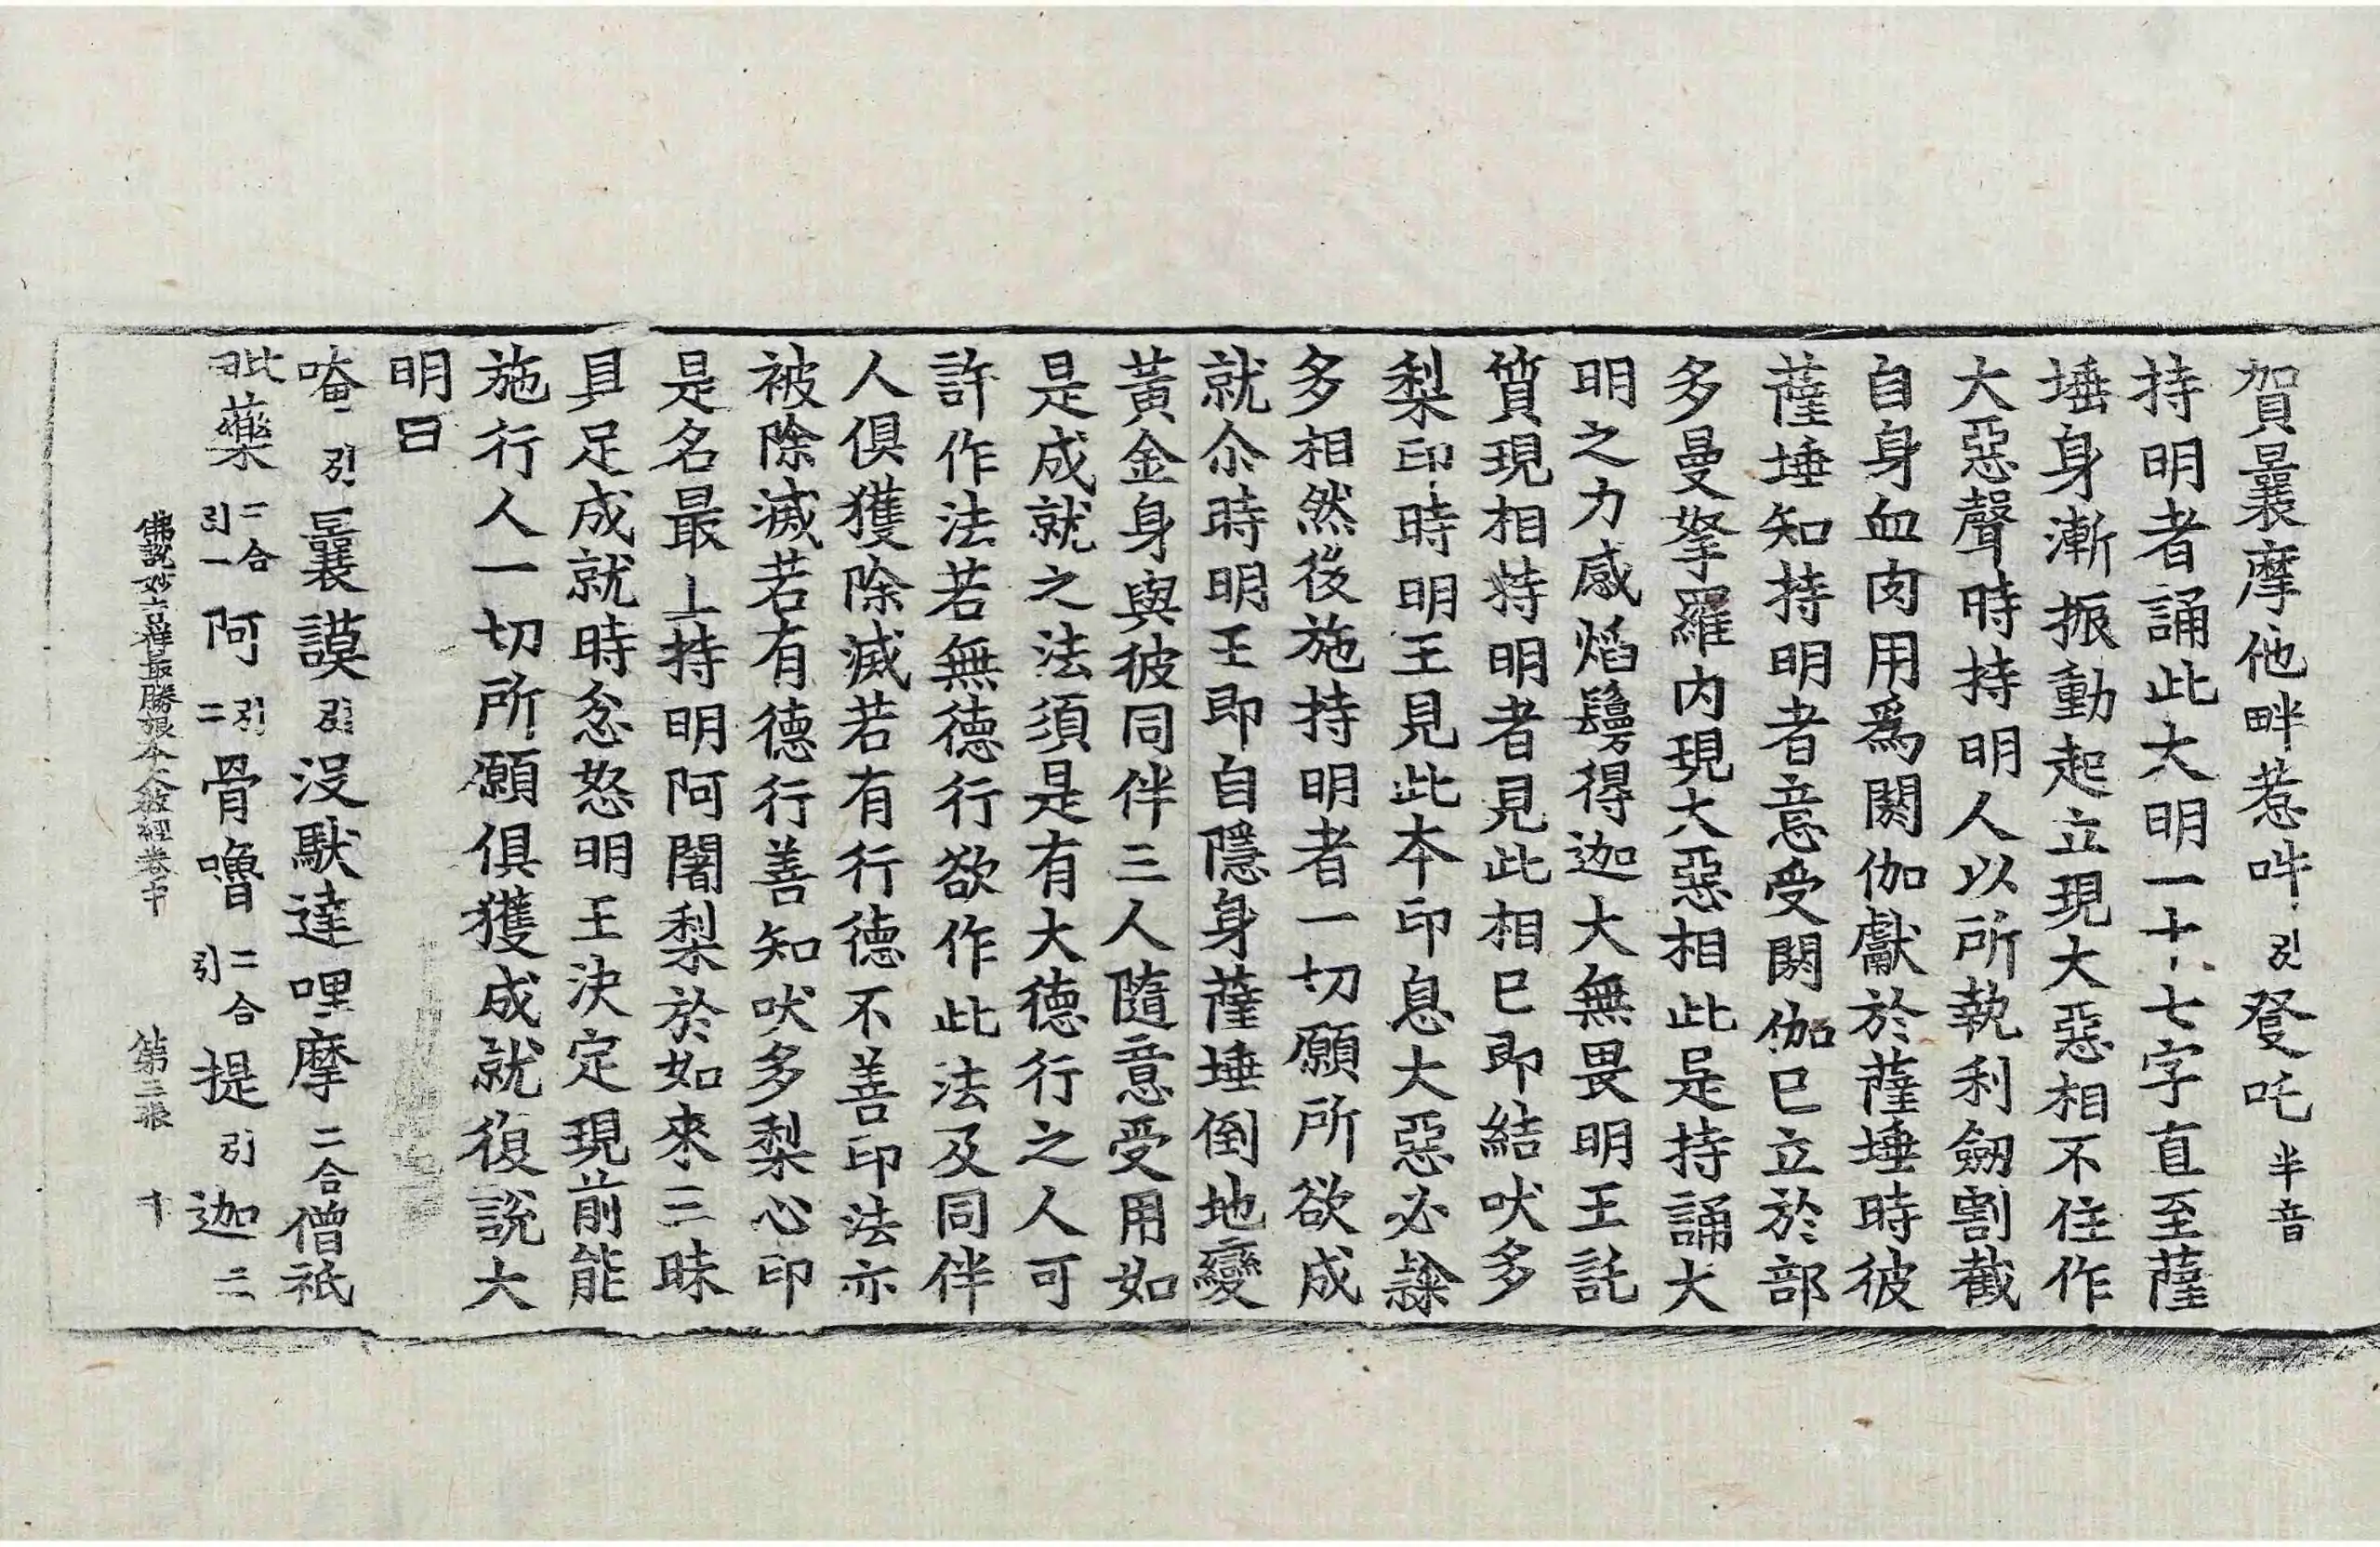 賀曩摩他畔惹吽引發吒半音
持明者誦此大明一十七字直至薩
埵身漸振動起立現大惡相不住作
大惡聲時持明人以所執利劒割截
自身血肉用爲閼伽獻於薩埵時彼
薩埵知持明者意受閼伽已立於部
多曼拏羅内現大惡相此是持誦大
明之力感焰鬘得迦大無畏明王託
質現相持明者見此相已即結吠多
梨印時明王見此本印息大惡必𨽻
多相然後施持明者一切願所欲成
就尒時明王即自隱身薩埵倒地變
黃金身與彼同伴三人隨意受用如
是成就之法須是有大德行之人可
許作法若無德行欲作此法及同伴
人俱獲除滅若有行德不善印法亦
被除滅若有德行善知吠多梨心印
是名最上持明阿闍梨於如來三昧
具足成就時忿怒明王決定現前能
施行人一切所願俱獲成就復說大
明曰
唵引曩謨引沒馱達哩摩二合僧祇
毗藥二合引一阿引二骨嚕二合引提引迦三
佛說妙吉祥最勝根本大教經卷下 第三張 十